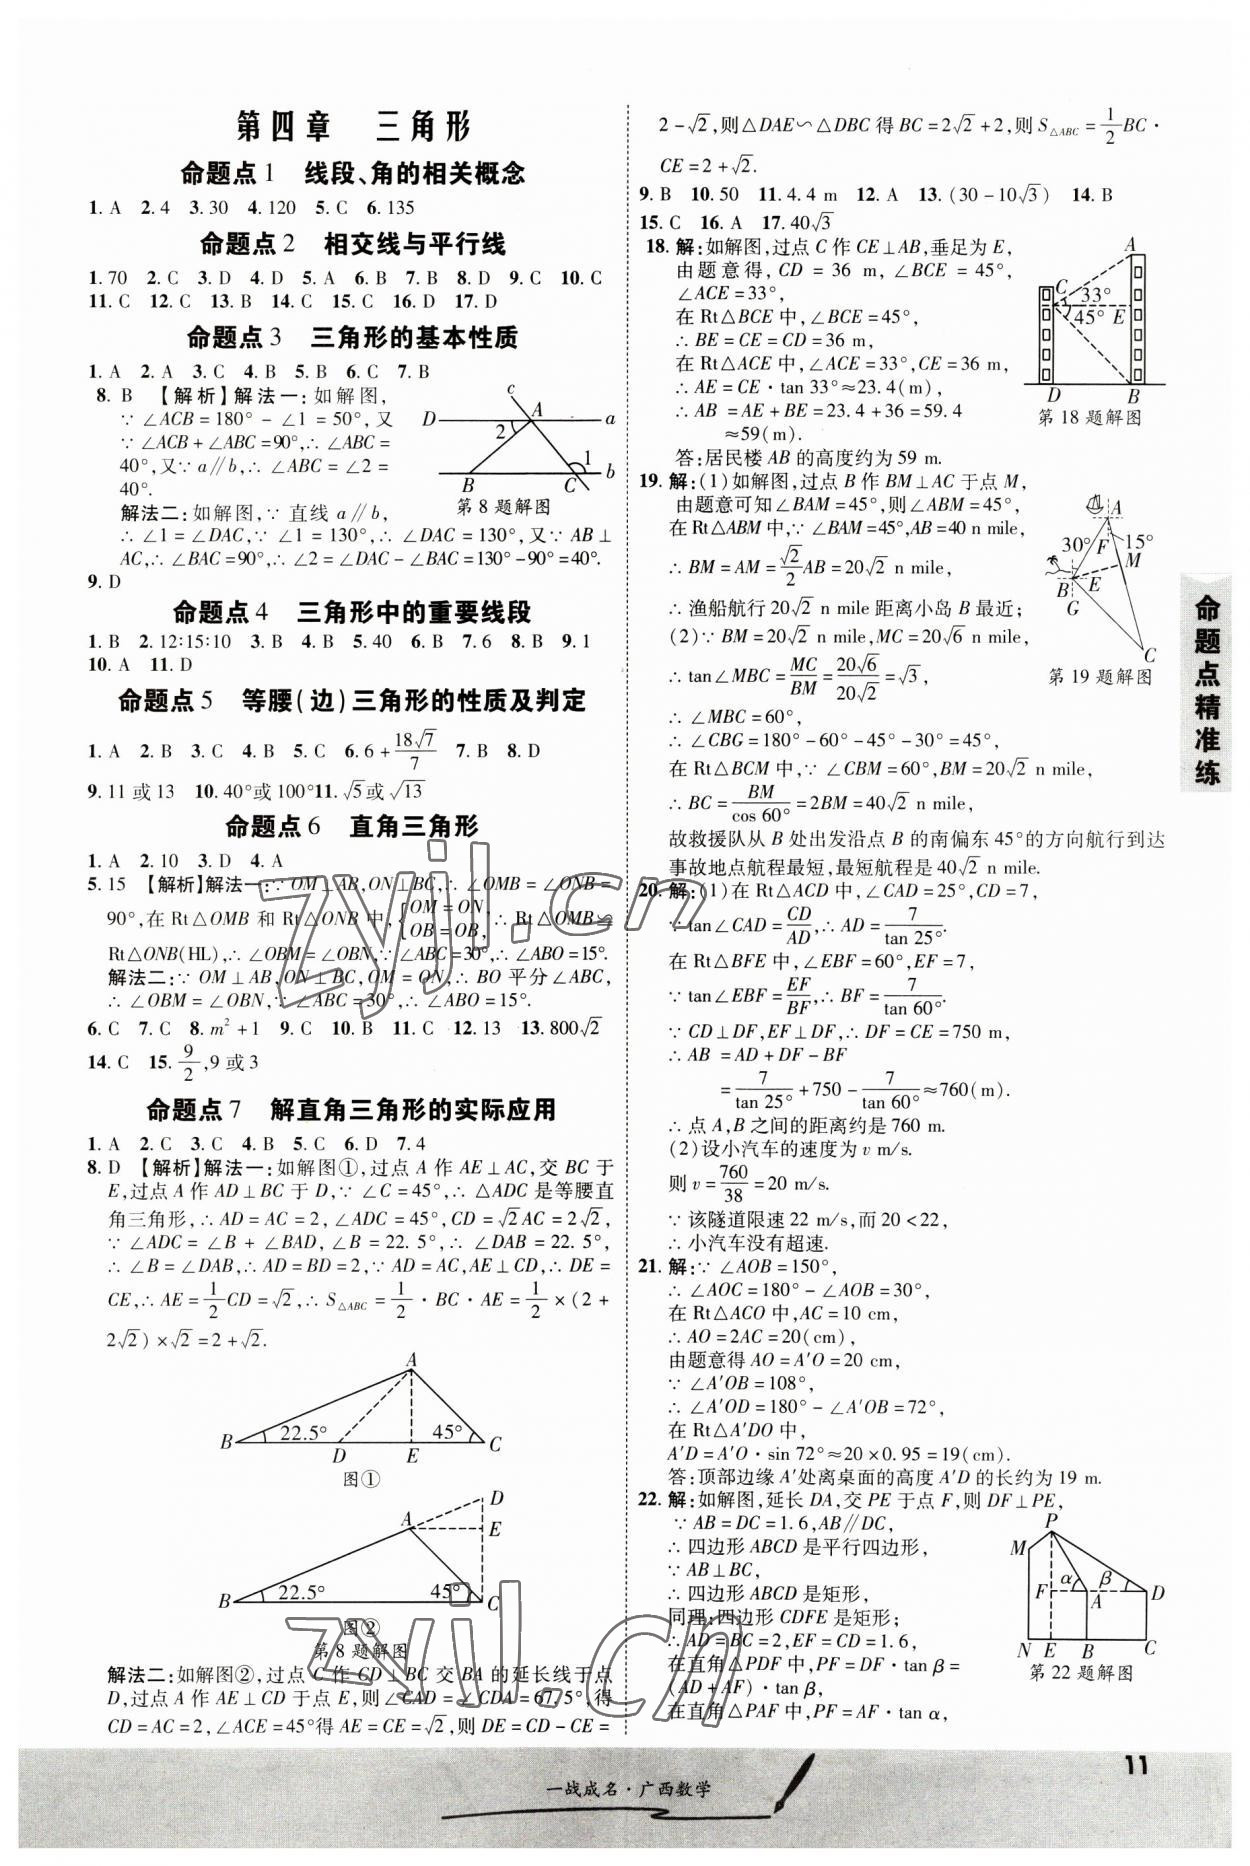 第四章　三角形
命题点1　线段、角的相关概念
1. A　2. 4　3. 30　4. 120　5. C　6. 135
命题点2　相交线与平行线
1. 70　2. C　3. D　4. D　5. A　6. B　7. B　8. D　9. C　10. C
11. C　12. C　13. B　14. C　15. C　16. D　17. D
命题点3　三角形的基本性质
1. A　2. A　3. C　4. B　5. B　6. C　7. B
8. B　【解析】解法一:如解图,
∵∠ACB=180°-∠1=50°,又
∵∠ACB+∠ABC=90°,∴∠ABC=
40°,又∵a∥b,∴∠ABC=∠2=
40°.
c
D A a
2
1
B C b
第8题解图
解法二:如解图,∵直线a∥b,
∴∠1=∠DAC,∵∠1=130°,∴∠DAC=130°,又∵AB⊥
AC,∴∠BAC=90°,∴∠2=∠DAC-∠BAC=130°-90°=40°.
9. D
命题点4　三角形中的重要线段
1. B　2. 12:15:10　3. B　4. B　5. 40　6. B　7. 6　8. B　9. 1
10. A　11. D
命题点5　等腰(边)三角形的性质及判定
1. A　2. B　3. C　4. B　5. C　6. 6+18√7/7　7. B　8. D
9. 11或13　10. 40°或100°　11. √5或√13
命题点6　直角三角形
1. A　2. 10　3. D　4. A
5. 15　【解析】解法一:∵OM⊥AB,ON⊥BC,∴∠OMB=∠ONB=
90°,在Rt△OMB和Rt△ONB中,{OM=ON, OB=OB,∴Rt△OMB≌
Rt△ONB(HL),∴∠OBM=∠OBN,∵∠ABC=30°,∴∠ABO=15°.
解法二:∵OM⊥AB,ON⊥BC,OM=ON,∴BO平分∠ABC,
∴∠OBM=∠OBN,∵∠ABC=30°,∴∠ABO=15°.
6. C　7. C　8. m²+1　9. C　10. B　11. C　12. 13　13. 800√2
14. C　15. 9/2,9或3
命题点7　解直角三角形的实际应用
1. A　2. C　3. C　4. B　5. C　6. D　7. 4
8. D　【解析】解法一:如解图①,过点A作AE⊥AC,交BC于
E,过点A作AD⊥BC于D,∵∠C=45°,∴△ADC是等腰直
角三角形,∴AD=AC=2,∠ADC=45°,CD=√2AC=2√2,
∵∠ADC=∠B+∠BAD,∠B=22.5°,∴∠DAB=22.5°,
∴∠B=∠DAB,∴AD=BD=2,∵AD=AC,AE⊥CD,∴DE=
CE,∴AE=1/2CD=√2,∴S△ABC=1/2·BC·AE=1/2×(2+
2√2)×√2=2+√2.
A
B 22.5° D E 45° C
图①
D
A E
B 22.5° 45° C
图②
第8题解图
解法二:如解图②,过点C作CD⊥BC交BA的延长线于点
D,过点A作AE⊥CD于点E,则∠CAD=∠CDA=67.5°,得
CD=AC=2,∠ACE=45°得AE=CE=√2,则DE=CD-CE=
2-√2,则△DAE∽△DBC得BC=2√2+2,则S△ABC=1/2BC·
CE=2+√2.
9. B　10. 50　11. 4.4 m　12. A　13. (30-10√3)　14. B
15. C　16. A　17. 40√3
18. 解:如解图,过点C作CE⊥AB,垂足为E,
由题意得,CD=36 m,∠BCE=45°,
∠ACE=33°,
在Rt△BCE中,∠BCE=45°,
∴BE=CE=CD=36 m,
在Rt△ACE中,∠ACE=33°,CE=36 m,
∴AE=CE·tan 33°≈23.4(m),
∴AB=AE+BE=23.4+36=59.4
≈59(m).
答:居民楼AB的高度约为59 m.
A
C 33°
45° E
D B
第18题解图
19. 解:(1)如解图,过点B作BM⊥AC于点M,
由题意可知∠BAM=45°,则∠ABM=45°,
在Rt△ABM中,∵∠BAM=45°,AB=40 n mile,
∴BM=AM=√2/2AB=20√2 n mile,
∴渔船航行20√2 n mile距离小岛B最近;
(2)∵BM=20√2 n mile,MC=20√6 n mile,
∴tan∠MBC=MC/BM=20√6/20√2=√3,
∴∠MBC=60°,
∴∠CBG=180°-60°-45°-30°=45°,
在Rt△BCM中,∵∠CBM=60°,BM=20√2 n mile,
∴BC=BM/cos 60°=2BM=40√2 n mile,
故救援队从B处出发沿点B的南偏东45°的方向航行到达
事故地点航程最短,最短航程是40√2 n mile.
A
30° F 15°
M
B E
G
C
第19题解图
20. 解:(1)在Rt△ACD中,∠CAD=25°,CD=7,
∵tan∠CAD=CD/AD,∴AD=7/tan 25°.
在Rt△BFE中,∠EBF=60°,EF=7,
∵tan∠EBF=EF/BF,∴BF=7/tan 60°.
∵CD⊥DF,EF⊥DF,∴DF=CE=750 m,
∴AB=AD+DF-BF
=7/tan 25°+750-7/tan 60°≈760(m).
∴点A,B之间的距离约是760 m.
(2)设小汽车的速度为v m/s.
则v=760/38=20 m/s.
∵该隧道限速22 m/s,而20<22,
∴小汽车没有超速.
21. 解:∵∠AOB=150°,
∴∠AOC=180°-∠AOB=30°,
在Rt△ACO中,AC=10 cm,
∴AO=2AC=20(cm),
由题意得AO=A′O=20 cm,
∵∠A′OB=108°,
∴∠A′OD=180°-∠A′OB=72°,
在Rt△A′DO中,
A′D=A′O·sin 72°≈20×0.95=19(cm).
答:顶部边缘A′处离桌面的高度A′D的长约为19 m.
22. 解:如解图,延长DA,交PE于点F,则DF⊥PE,
∵AB=DC=1.6,AB∥DC,
∴四边形ABCD是平行四边形,
∵AB⊥BC,
∴四边形ABCD是矩形,
同理:四边形CDFE是矩形;
∴AD=BC=2,EF=CD=1.6,
在直角△PDF中,PF=DF·tan β=
(AD+AF)·tan β,
在直角△PAF中,PF=AF·tan α,
P
M
F α β D
A
N E B C
第22题解图
命题点精准练
一战成名·广西数学
11
zyjl.cn
zyjl.cn